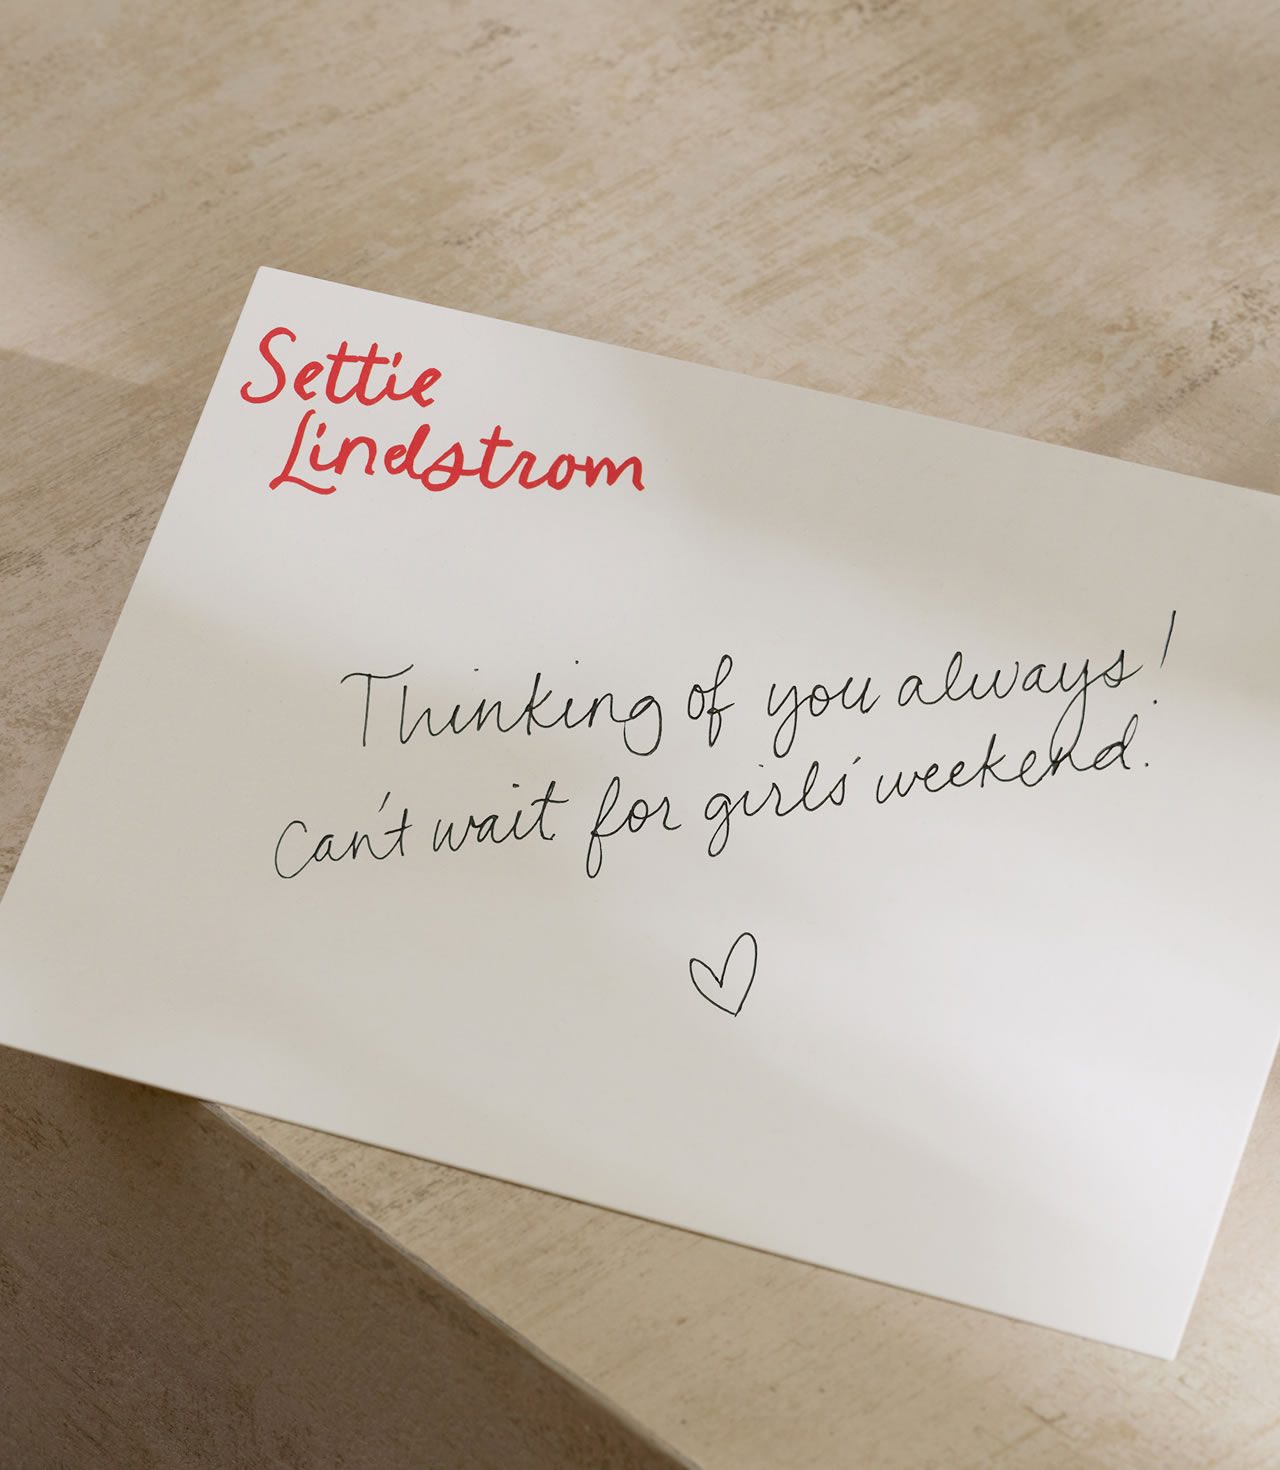 Settie
Lindstrom
Thinking of you always!
Can't wait for girls' weekend.